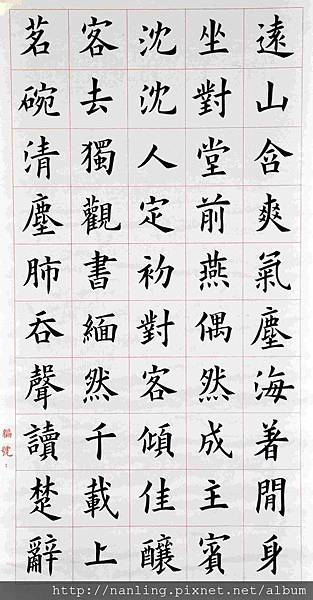 遠山含爽氣塵海著閒身
坐對堂前燕偶然成主賓
沈沈人定初對客傾佳釀
客去獨觀書緬然千載上
茗碗清塵肺吞聲讀楚辭
編號：
http://nanling.pixnet.net/album